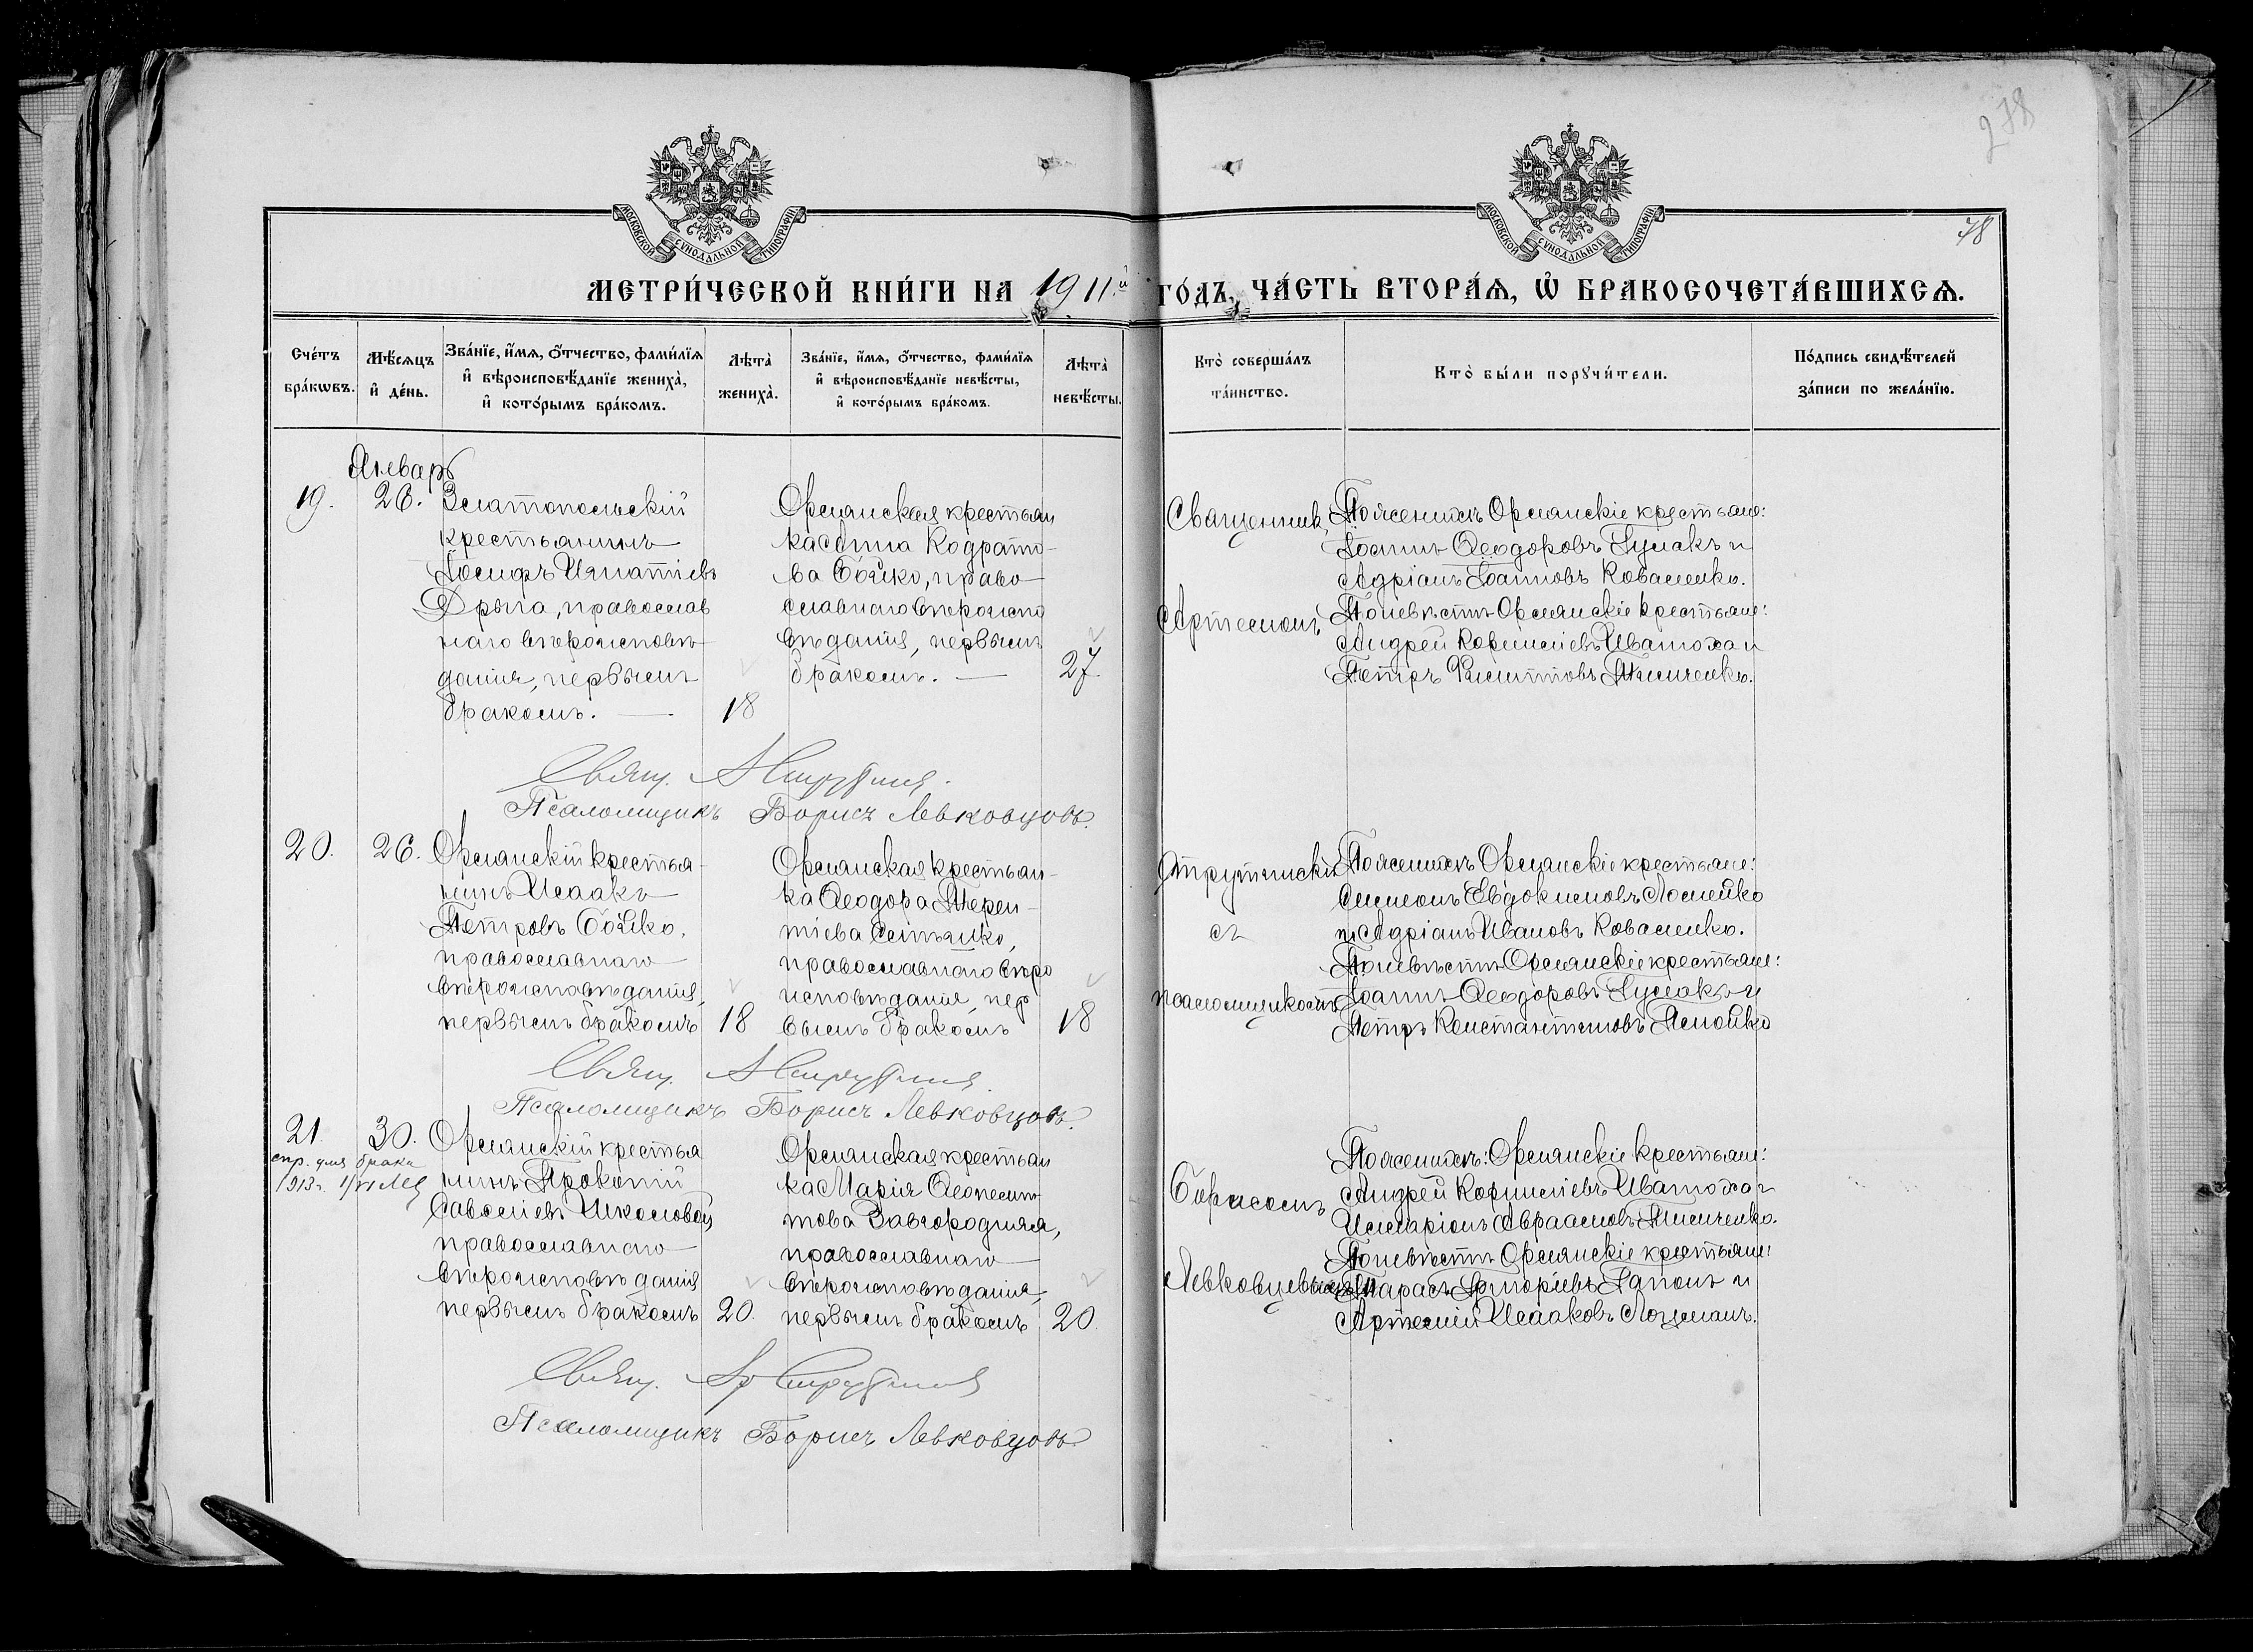 278
78
МОСКОВСКОЙ СѴНОДАЛЬНОЙ ТИПОГРАФІИ
МОСКОВСКОЙ СѴНОДАЛЬНОЙ ТИПОГРАФІИ
МЕТРИ́ЧЕСКОЙ КНИ́ГИ НА 1911й ГО́ДЪ, ЧА́СТЬ ВТОРА́Я, Ѡ БРАКОСОЧЕТА́ВШИХСЯ.
Сче́тъ бра́кѡвъ.
Мѣ́сяцъ и де́нь.
Зва́нїе, и́мя, о́тчество, фами́лїя
и вѣроисповѣ́данїе жениха̀,
и кото́рымъ бра́комъ.
Лѣта̀ жениха̀.
Зва́нїе, и́мя, о́тчество, фами́лїя
и вѣроисповѣ́данїе невѣ́сты,
и кото́рымъ бра́комъ.
Лѣта̀ невѣ́сты.
Кто̀ соверша́лъ та́инство.
Кто̀ бы́ли порꙋчи́тели.
По́дпись свидѣ́телей
за́писи по жела́нїю.
Январь
19.
26.
Златопольскій
крестьянинъ
Іосифъ Игнатіевъ
Дрыга, православ
наго вѣроисповѣ-
данія, первымъ
бракомъ.
18
Орлянская крестьян
ка Анна Кодрато-
ва Бойко, право-
славнаго вѣроиспо
вѣданія, первымъ
бракомъ.
27.
Священник
Артемонъ
По женихѣ Орлянскіе крестьяне:
Іоаннъ Ѳеодоровъ Гулакъ и
Адріанъ Іоанновъ Коваленко.
По невѣстѣ Орлянскіе крестьяне:
Андрей Корниліевъ Иватоха и
Петръ Филиповъ
Свящ.
Псаломщикъ Борисъ Левковцовъ.
20.
26.
Орлянскій крестья-
нинъ Исаакъ
Петровъ Бойко,
православнаго
вѣроисповѣданія,
первымъ бракомъ
18
Орлянская крестьян-
ка Ѳеодора Терен-
тіева
православнаго вѣро
исповѣданія, пер
вымъ бракомъ
18
съ
псаломщикомъ
По женихѣ Орлянскіе крестьяне:
Симеонъ Евдокимовъ Ломейко
и Адріанъ Ивановъ Коваленко.
По невѣстѣ Орлянскіе крестьяне:
Іоаннъ Ѳеодоровъ Гулакъ и
Петръ Константиновъ
Свящ.
Псаломщикъ Борисъ Левковцовъ.
21.
30.
спр. для брака
1913 г.
Орлянскій крестья
нинъ Прокопій
Савеліевъ Школовой
православнаго
вѣроисповѣданія
первымъ бракомъ
20
Орлянская крестьян
ка Марія Ѳеопемп-
това Завгородняя,
православнаго
вѣроисповѣданія,
первымъ бракомъ
20.
Борисомъ
Левковцевымъ
По женихѣ: Орлянскіе крестьяне:
Андрей Корниліевъ Иватоха и
Илларіонъ Авраамовъ
По невѣстѣ Орлянскіе крестьяне:
Тарасъ Григоріевъ Гапонъ и
Артемій Исааковъ Лоцманъ.
Свящ.
Псаломщикъ Борисъ Левковцовъ